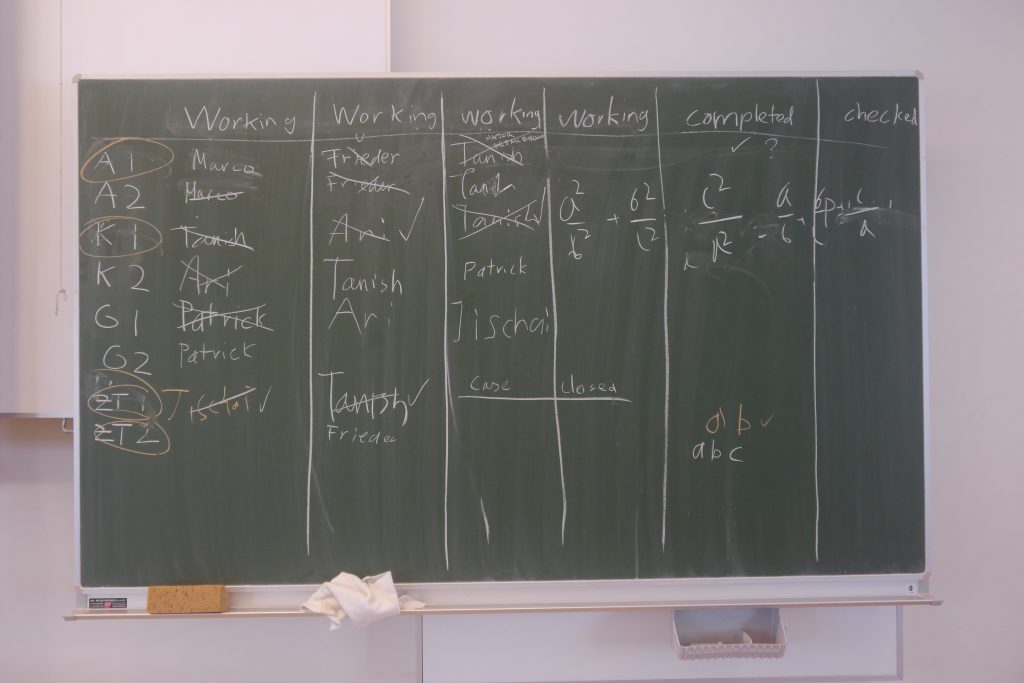 Working Working working working completed checked
A1 Marco Frieder Tanish ✓ ?
A2 Marco Frieder Tanish
K1 Tanish Ari ✓ Tanish ✓ a²/b² + b²/c² c²/a² a/b c/a
K2 Ari Tanish Patrick
G1 Patrick Ari Jischai
G2 Patrick
ZT1 Jischai ✓ Tanish ✓ Case closed
ZT2 Frieder
a b ✓
a b c